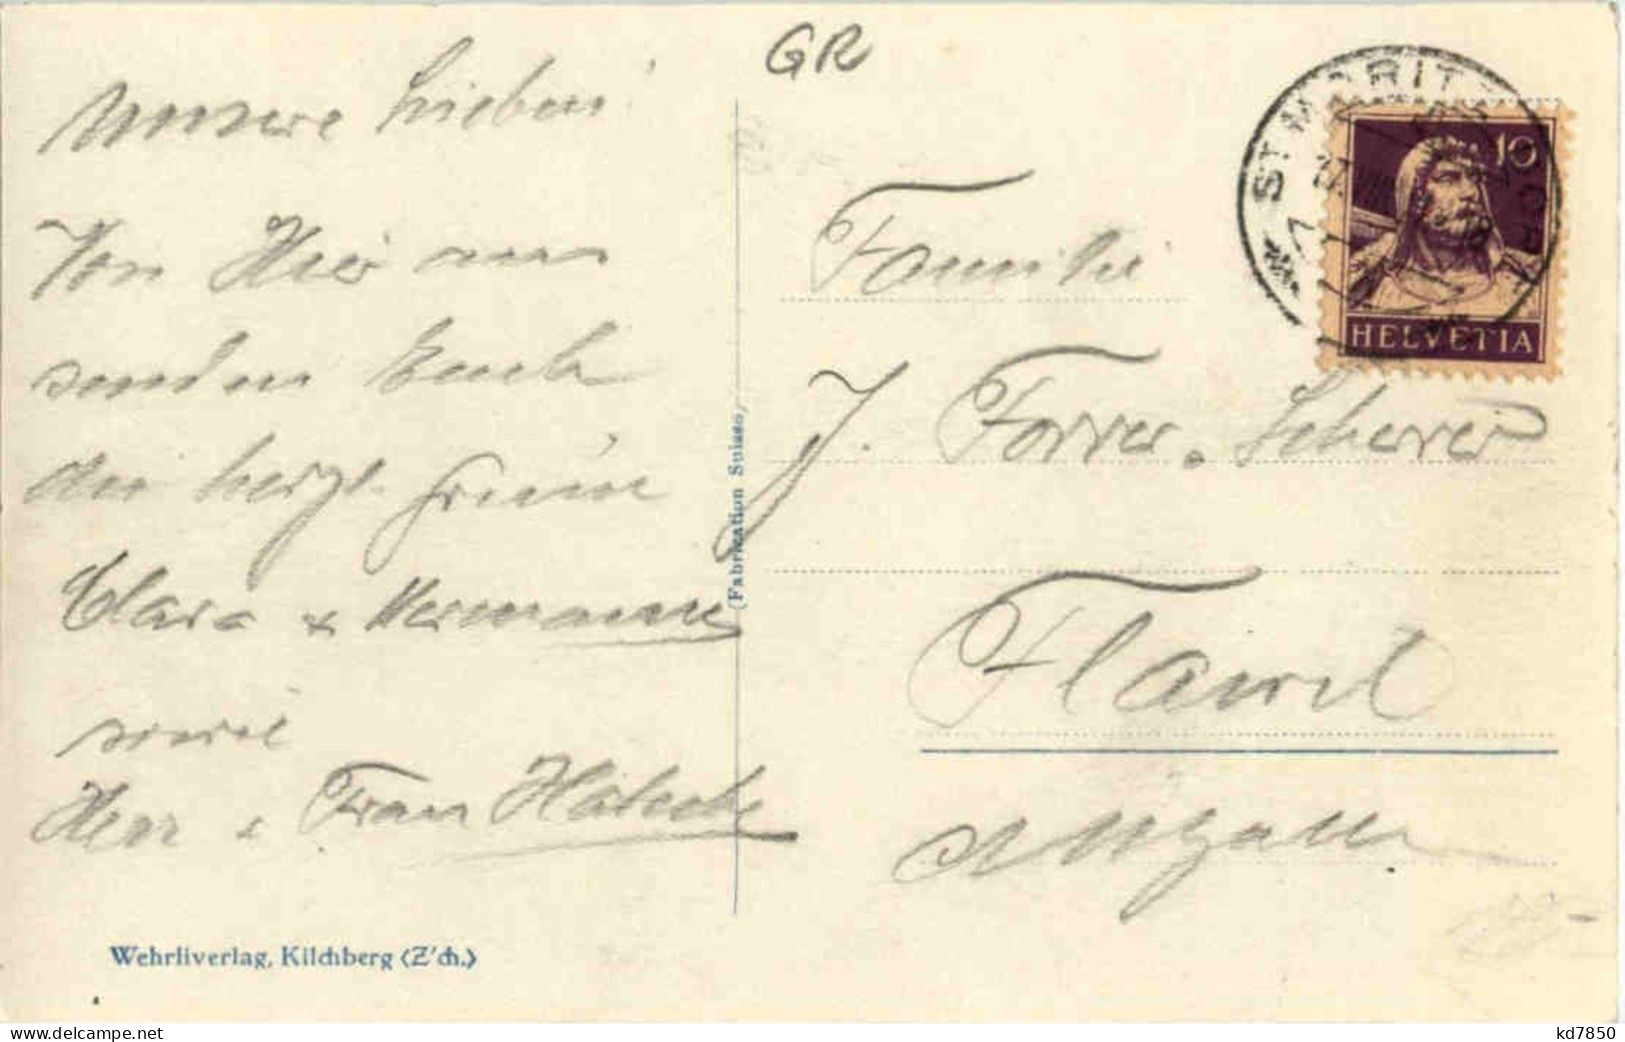 GR
Unsere Lieben!
Von Hier aus
senden Euch
die herzl. Grüsse
Clara & Hermann
sowie
Herr & Frau
(Fabrication Suisse)
ST. MORITZ DORF
10
HELVETIA
Familie
J. Forrer-Scherer
Flawil
St. Gallen
Wehrliverlag, Kilchberg (Z'ch.)
www.delcampe.net
kd7850